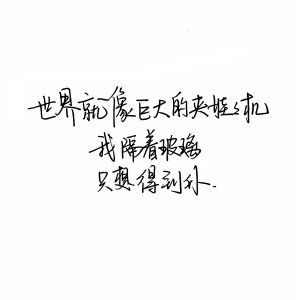 世界就像巨大的夹娃々机
我隔着玻璃
只想得到你.